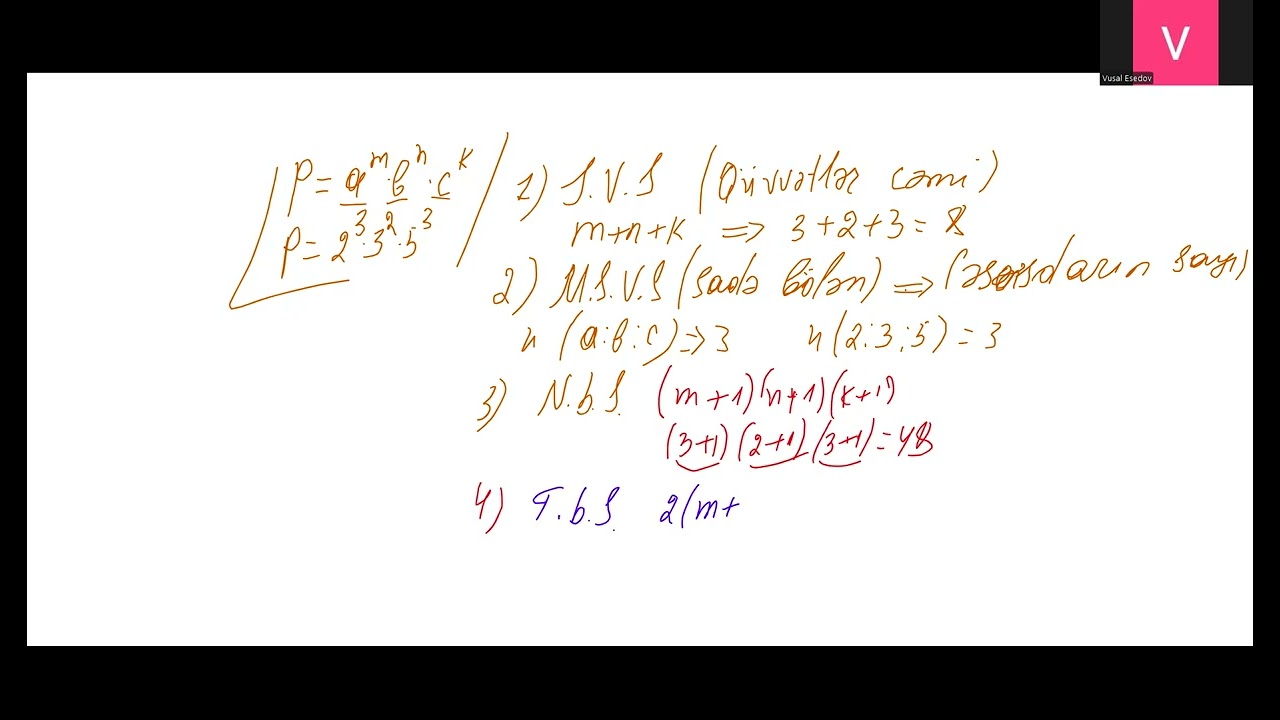 V
Vusal Esedov
P = a^m · b^n · c^k
P = 2^3 · 3^2 · 5^3
1) S.V.S (Qüvvətlər cəmi)
m+n+k => 3+2+3=8
2) M.S.V.S (sadə bölən) => (əsasların sayı)
n (a:b:c) => 3 n(2:3:5) = 3
3) N.b.S. (m+1)(n+1)(k+1)
(3+1)(2+1)(3+1)=48
4) T.b.S. 2(m+